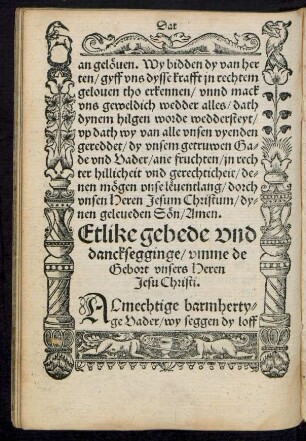 Dat
an gelöuen. Wy bidden dy van her
ten/ gyff vns dysse krafft jn rechtem
gelouen tho erkennen/ vnnd mack
vns geweldich wedder alles/ dath
dynem hilgen worde weddersteyt/
vp dath wy van alle vnsen vyenden
gereddet/ dy vnsem getruwen Ga⸗
de vnd Vader/ ane fruchten/ jn rech
ter hillicheit vnd gerechticheit/ de⸗
nen mögen vnse leuentlang/ dorch
vnsen Heren Jesum Christum/ dy⸗
nen geleueden Sön/ Amen.
Etlike gebede vnd
dancksegginge/ vmme de
Gebort vnsers Heren
Jesu Christi.
ALmechtige barmherty⸗
ge Vader/ wy seggen dy loff